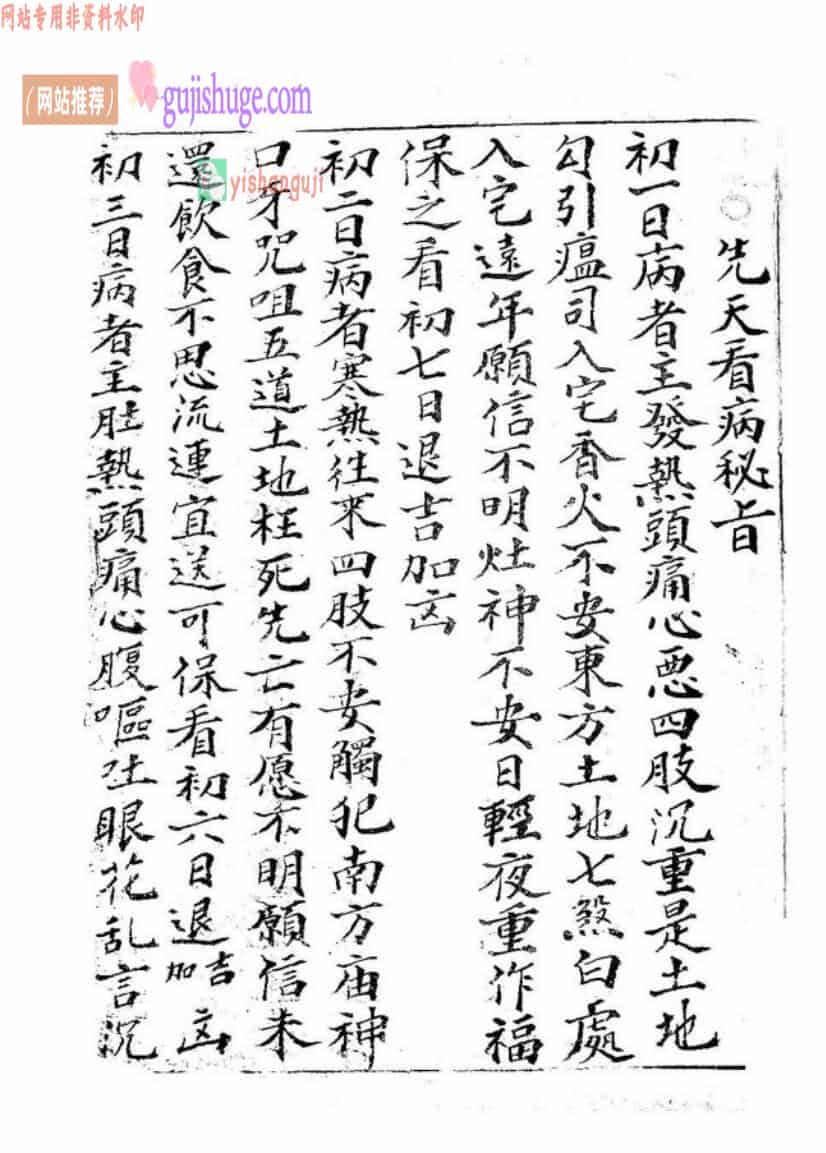 网站专用非资料水印
（网站推荐）
gujishuge.com
yishanguji
先天看病秘旨
初一日病者主發熱頭痛心悪四肢沉重是土地
勾引瘟司入宅香火不安東方土地七煞白處
入宅遠年願信不明灶神不安日輕夜重作福
保之看初七日退吉加凶
初二日病者寒熱往来四肢不安觸犯南方庙神
口牙咒咀五道土地枉死先亡有愿不明願信未
還飲食不思流連宜送可保看初六日退吉加凶
初三日病者主肚熱頭痛心腹嘔吐眼花乱言沉